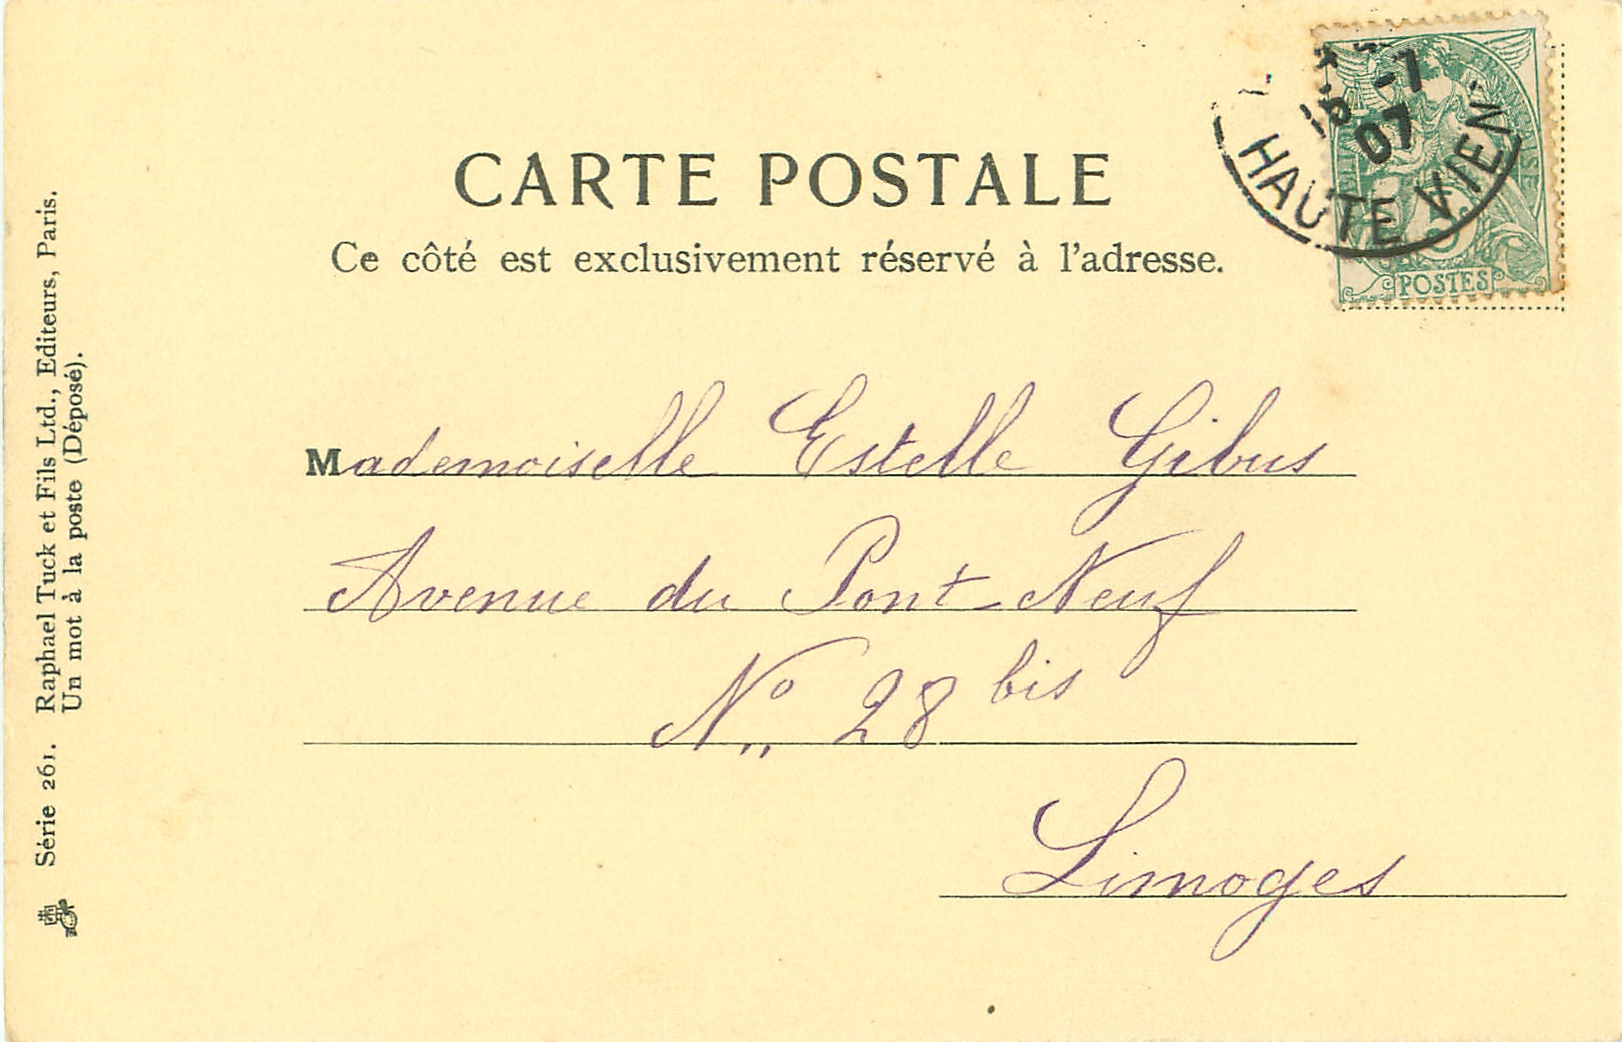 CARTE POSTALE
Ce côté est exclusivement réservé à l'adresse.
-7
07
HAUTE VIEN
5c
POSTES
Mademoiselle Estelle Gibus
Avenue du Pont-Neuf
No 28 bis
Limoges
Série 261. Raphael Tuck et Fils Ltd., Editeurs, Paris.
Un mot à la poste (Déposé).